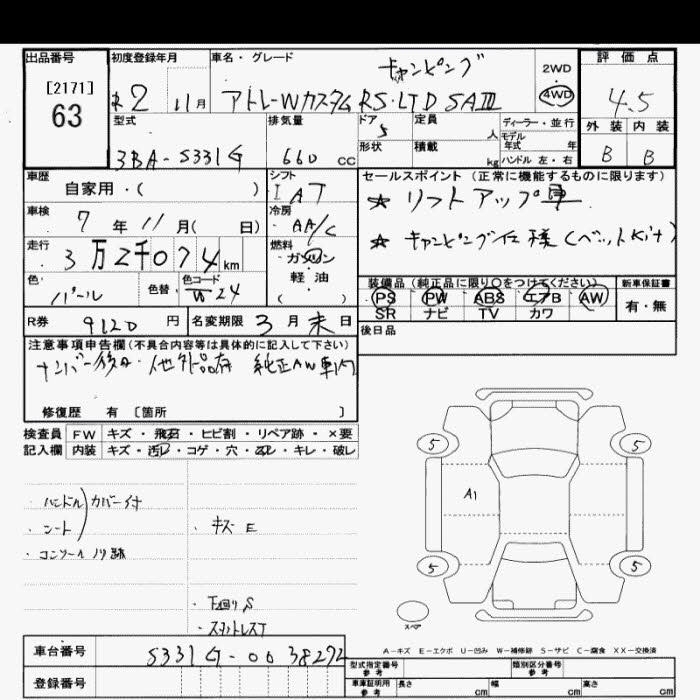 出品番号
[2171]
63
初度登録年月
R2 11月
車名・グレード
キャンピング
アトレーWカスタムRS・LTD SAⅢ
2WD
4WD
評価点
4.5
外装 内装
B B
型式
3BA-S331G
排気量
660 cc
ドア
5
定員
人
形状
積載
kg
ディーラー・並行
モデル年式 年
ハンドル 左・右
車歴
自家用・( )
シフト
IAT
セールスポイント (正常に機能するものに限ります)
☆ リフトアップ車
☆ キャンピング仕様(ベットKit)
車検
7年11月( 日)
冷房
AA/C
走行
3万2千074km
燃料
ガソリン
軽・油
( )
色:
パール
色替
色コード
W24
装備品 (純正品に限り○をつけてください)
PS PW ABS エアB AW
SR ナビ TV カワ
新車保証書
有・無
R券 9120円
名変期限 3月末日
後日品
注意事項申告欄(不具合内容等は具体的に記入して下さい)
ナンバー移動・他外品有 純正AW車内
修復歴 有 [箇所 ]
検査員 FW キズ・飛石・ヒビ割・リペア跡・×要
記入欄 内装 キズ・汚レ・コゲ・穴・スレ・キレ・破レ
・ハンドル
・シート
カバー付
・コンソールノリ跡
・キズE
・下廻りS
・スタットレスT
5 5
A1
5 5
スペア
A-キズ E-エクボ U-凹み W-補修跡 S-サビ C-腐食 XX-交換済
車台番号 S331G-0038272
登録番号
型式指定番号 参考
類別区分番号 参考
車庫証明用 参考
長さ cm 幅 cm 高さ cm